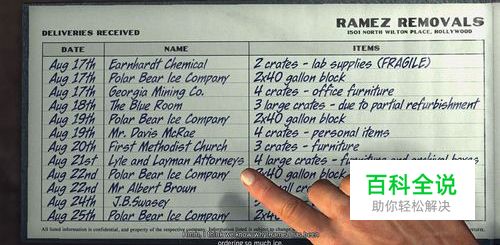 RAMEZ REMOVALS
DELIVERIES RECEIVED 1501 NORTH WILTON PLACE, HOLLYWOOD
DATE NAME ITEMS
Aug 17th Earnhardt Chemical 2 crates - lab supplies (FRAGILE)
Aug 17th Polar Bear Ice Company 2x40 gallon block
Aug 17th Georgia Mining Co. 4 crates - office furniture
Aug 18th The Blue Room 3 large crates - due to partial refurbishment
Aug 19th Polar Bear Ice Company 2x40 gallon block
Aug 19th Mr. Davis McRae 4 crates - personal items
Aug 20th First Methodist Church 3 crates - furniture
Aug 21st Lyle and Layman Attorneys 4 large crates - furniture and archival boxes
Aug 22nd Polar Bear Ice Company 2x40 gallon block
Aug 22nd Mr Albert Brown small
Aug 24th J.B.Swasey
Aug 25th Polar Bear Ice Company
All listed information is confidential, and property of the respective company.
ordering so much ice.
百科全说
助你轻松解决